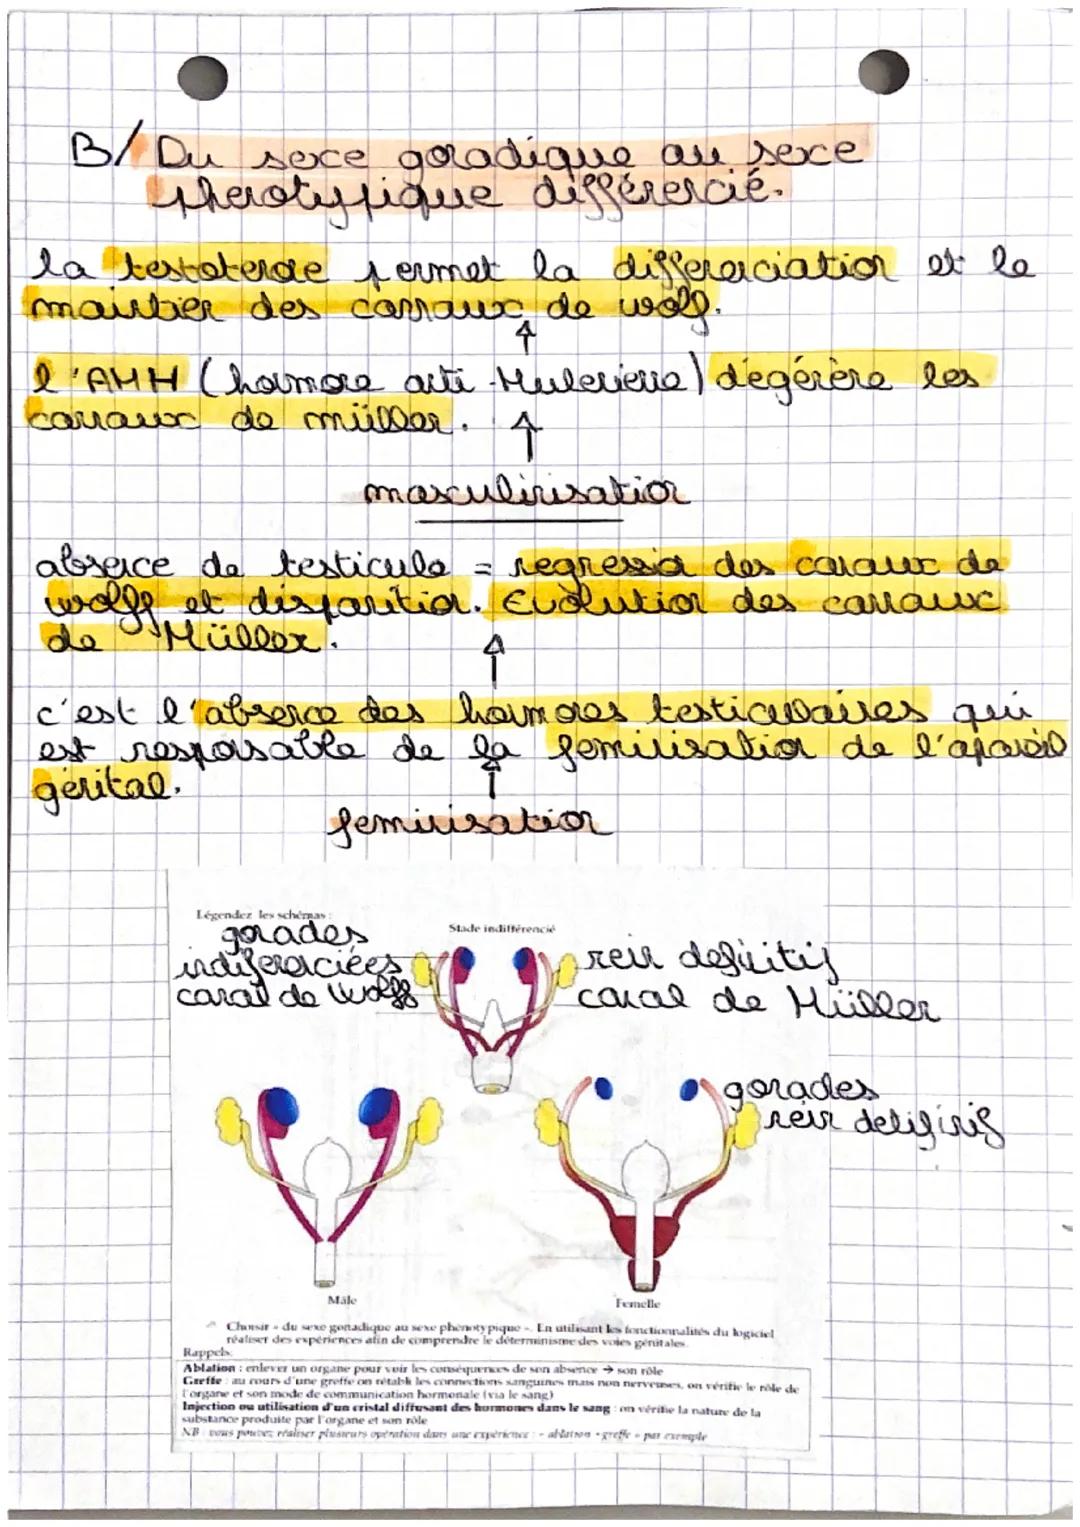 B/ Du sexe gonadique au sexe
phenotypique différencié.
la testoterone permet la differenciation et le
maintien des cannaux de wolf.
l'AMH (hormone anti-Mulerienne) dégénère les
cannaux de müller.
masculinisation
absence de testicule = regression des canaux de
wolff et disparition. Evolution des cannaux
de Müller.
c'est l'absence des hormones testiculaires qui
est responsable de la feminisation de l'apareil
génital.
feminisation
Légendez les schémas :
Stade indifférencié
gonades
indiferenciées
canal de Wolff
rein definitif
canal de Müller
gonades
rein definif
Mâle
Femelle
Choisir « du sexe gonadique au sexe phénotypique ». En utilisant les fonctionnalités du logiciel
réaliser des expériences afin de comprendre le déterminisme des voies génitales.
Rappels:
Ablation : enlever un organe pour voir les conséquences de son absence → son rôle
Greffe : au cours d'une greffe on rétabli les connections sanguines mais non nerveuses, on vérifie le rôle de
l'organe et son mode de communication hormonale (via le sang)
Injection ou utilisation d'un cristal diffusant des hormones dans le sang : on vérifie la nature de la
substance produite par l'organe et son rôle
NB : vous pouvez réaliser plusieurs opération dans une expérience : « ablation + greffe » par exemple